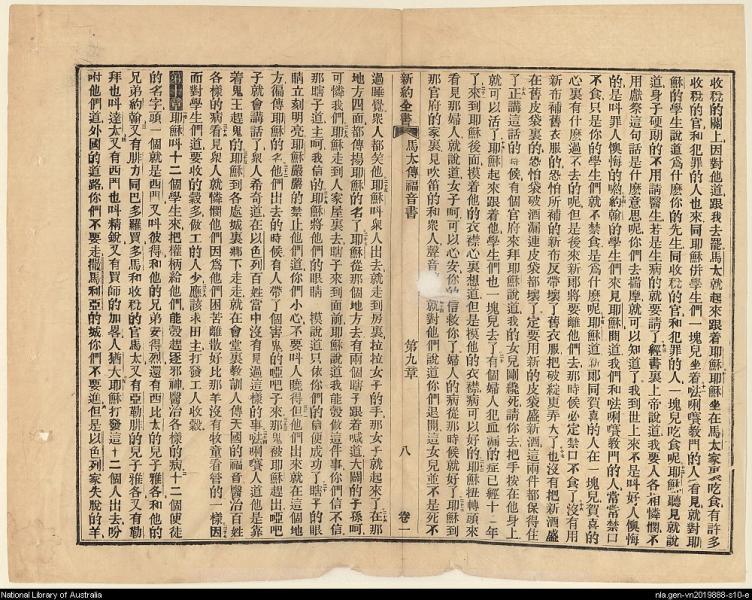 收稅的關上因對他道跟我去罷馬太就起來跟着耶穌耶穌坐在馬太家裏吃食有許多
收稅的官和犯罪的人也來同耶穌併學生們一塊兒坐着𠵽唎㘔教門的人看見就對耶
穌的學生說道爲什麼你的先生同收稅的官和犯罪的人一塊兒吃食呢耶穌聽見就說
道身子硬朗的不用請醫生若是生病的就要請了經書裏上帝說道我要人各相憐憫不
用獻祭這句話是什麼意思呢你們去揣摩就可以知道了我到世上來不是叫好人懊悔
的是叫罪人懊悔的喲約翰的學生們來見耶穌問道我們和𠵽唎㘔教門的人常常禁口
不食只是你的學生們就不禁食是爲什麼呢耶穌道新郎同賀喜的人在一塊兒賀喜的
心裏有什麼過不去的呢但是後來新郎將要離他們去那時候必定禁口不食了沒有用
新布補舊衣服的恐怕所補的新布反帶壞了舊衣服把破綻更弄大了也沒有把新酒盛
在舊皮袋裏的恐怕袋破酒漏連皮袋都壞了定要用新的皮袋盛新酒這兩件都保得住
了正講這話的時候有個官府來拜耶穌說道我的女兒剛纔死請你去把手按在他身上
就可以活了耶穌起來跟着他學生們也一塊兒去了有個婦人犯血漏的症已經十二年
了來到耶穌後面摸着他的衣襟心裏想道但是摸他的衣襟病可以好的耶穌扭轉頭來
看見那婦人就說道女子呵可以心安你信救你了婦人的病從那時候就好了耶穌到
那官府的家裏見吹笛的和衆人聲音就對他們說道你們退開這女兒並不是死不
新約全書 馬太傳福音書 第九章 八 卷一
過睡覺衆人都笑他耶穌叫衆人出去就走到房裏拉拉女子的手那女子就起來了在那
地方四面都傳揚耶穌的名了耶穌從那個地方去有兩個瞎子跟着喊道大闢的子孫呵
可憐我們耶穌走到人家屋裏去瞎子來到面前耶穌說道我能彀做這件事你們信不信
那瞎子道主呵我信的耶穌將他們的眼睛 摸說道只依你們的信便成功了瞎子的眼
睛立刻明亮耶穌嚴嚴的禁止他們道你們小心不要叫人曉得但他們出來就在這個地
方徧傳耶穌的名他們出去的時候有人帶了個害鬼的啞吧子來那鬼被耶穌趕出啞吧
子就會講話了衆人希奇道在以色列百姓當中沒有見過這樣的事𠵽唎㘔人道他是靠
着鬼王趕鬼的耶穌到各處城裏鄉下走走就在會堂裏教訓人傳天國的福音醫治百姓
各樣的病看見衆人就憐憫他們因爲他們困苦離散好比那羊沒有牧童看管的一樣因
而對學生們道要收的穀多做工的人少應該求田主打發工人收穀
第十章耶穌叫十二個學生來把權柄給他們能彀趕逐邪神醫治各樣的病十二個使徒
的名字頭一個就是西門又叫彼得和他的兄弟安得烈還有西比太的兒子雅各和他的
兄弟約翰又有腓力同巴多羅買多馬和收稅的官馬太又有亞勒腓的兒子雅各又有勒
拜也叫達太又有西門也叫精銳又有賣師的加畧人猶大耶穌打發這十二個人出去吩
咐他們道外國的道路你們不要走撒馬利亞的城你們不要進但是以色列家失脫的羊
National Library of Australia
nla.gen-vn2019888-s10-e